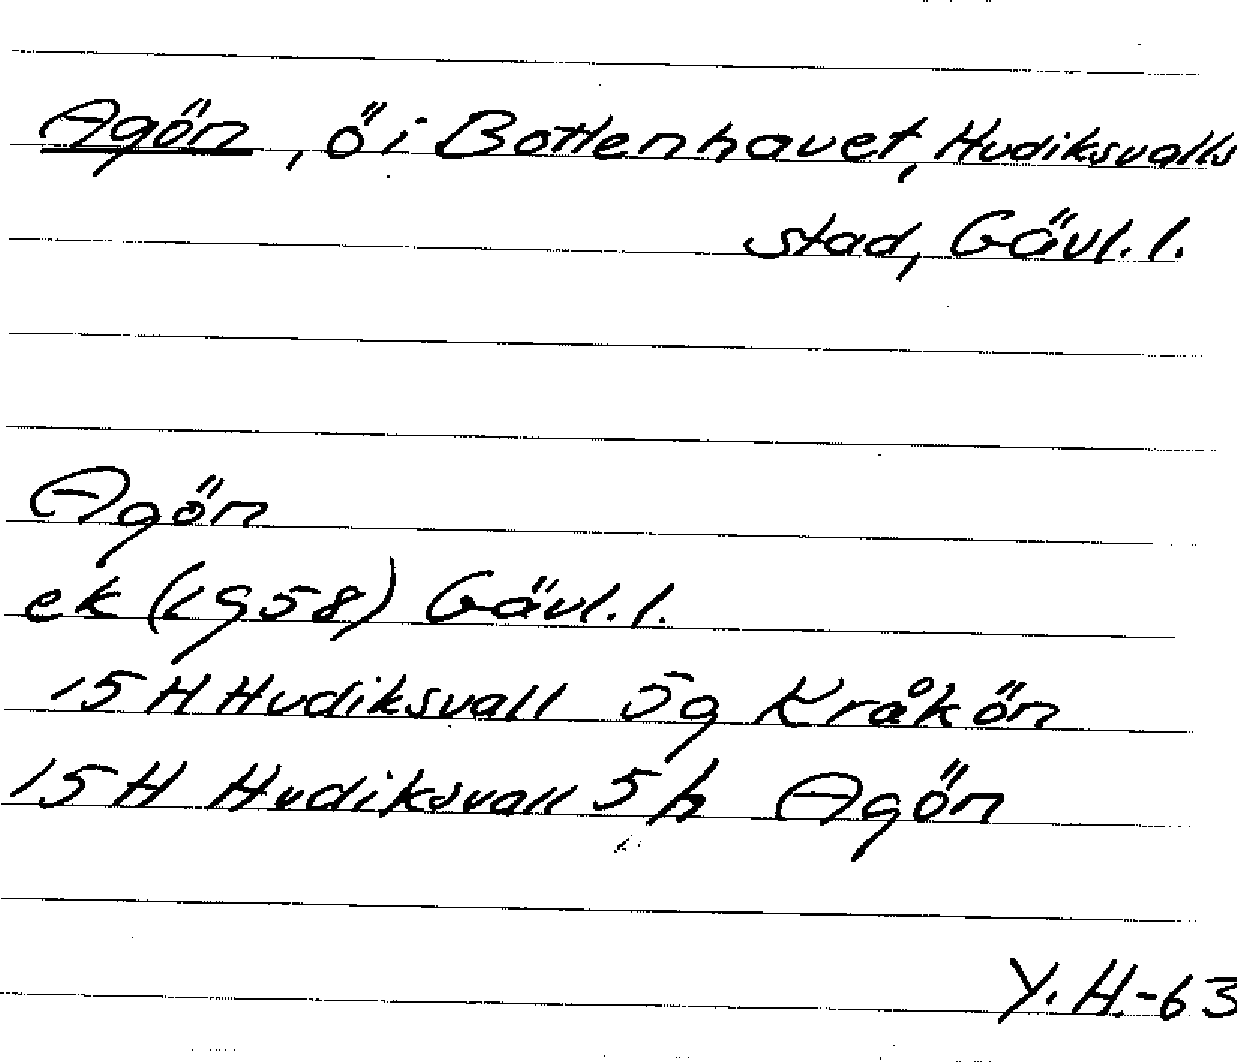 Agön, ö i Bottenhavet, Hudiksvalls
stad, Gävl. l.
Agön
ek (1958) Gävl. l.
15 H Hudiksvall 5g Kråkön
15 H Hudiksvall 5h Agön
Y. H.-63